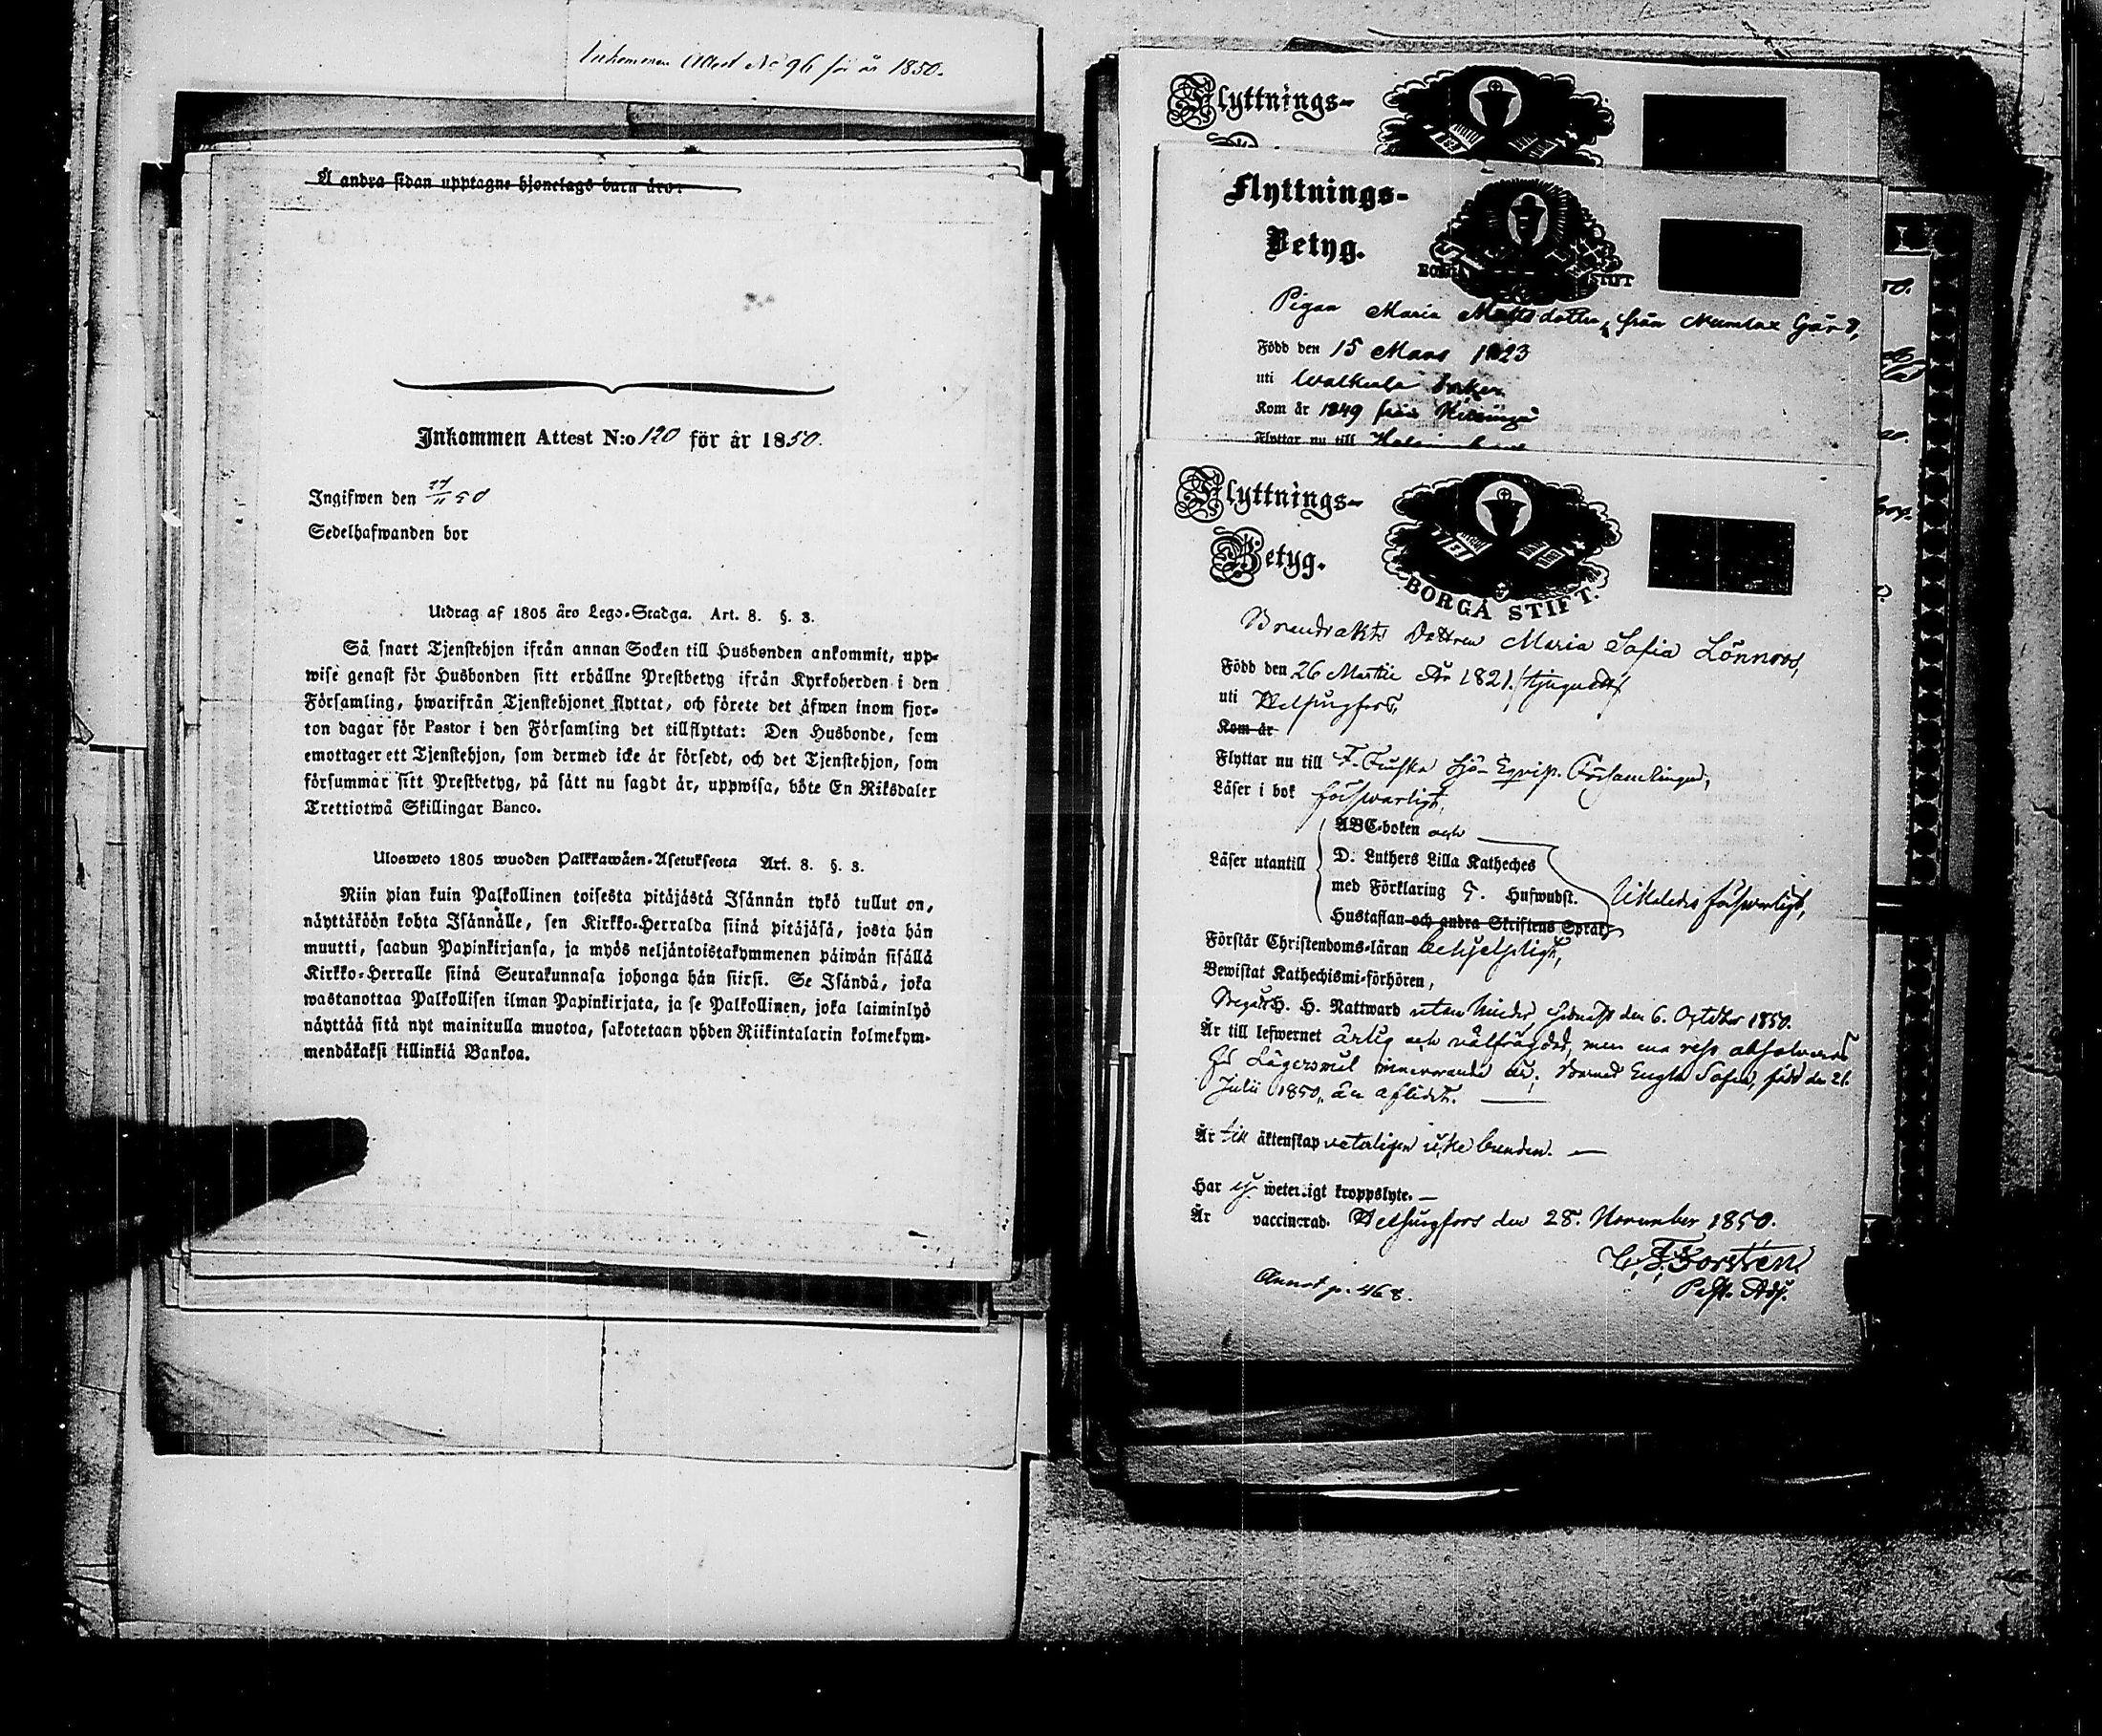 Inkommen Attest No 96 för år 1850.
Å andra sidan upptagne hjonelags barn äro:
Inkommen Attest N:o 120 för år 1850.
Ingifwen den 50
Sedelhafwanden bor
Utdrag af 1805 åro Lego-Stadga. Art. 8. §. 3.
Så snart Tjenstehjon ifrån annan Socken till Husbonden ankommit, upp-
wise genast för Husbonden sitt erhållne Prestbetyg ifrån Kyrkoherden i den
Församling, hwarifrån Tjenstehjonet flyttat, och förete det äfwen inom fjor-
ton dagar för Pastor i den Församling det tillflyttat: Den Husbonde, som
emottager ett Tjenstehjon, som dermed icke är försedt, och det Tjenstehjon, som
försummar sitt Prestbetyg, på sätt nu sagdt är, uppwisa, böte En Riksdaler
Trettiotwå Skillingar Banco.
Ulosweto 1805 wuoden Palkkawäen-Asetuksesta Art. 8. §. 3.
Niin pian kuin Palkollinen toisesta pitäjästä Isännän tykö tullut on,
näyttäköön kohta Isännälle, sen Kirkko-Herralda siinä pitäjäsä, josta hän
muutti, saadun Papinkirjansa, ja myös neljäntoistakymmenen päiwän sisällä
Kirkko-Herralle siinä Seurakunnasa johonga hän siirsi. Se Isändä, joka
wastanottaa Palkollisen ilman Papinkirjata, ja se Palkollinen, joka laiminlyö
näyttää sitä nyt mainitulla muotoa, sakotetaan yhden Riikintalarin kolmekym-
mendäkaksi killinkiä Bankoa.
Flyttnings-
Flyttnings-
Betyg.
BORGÅ STIFT
Pigan Maria Mattsdotter, från Numlax Gård,
Född den 15 Mars 1823
uti
Kom år 1849 från
Flyttar nu till
Flyttnings-
Betyg.
BORGÅ STIFT.
Dottren Maria Sofia Lönnroos,
Född den 26 Martii År 1821.
uti Helsingfors,
Kom år
Flyttar nu till Församlingen,
Läser i bok förswarligt,
ABC-boken och
Läser utantill D. Luthers Lilla Katheches
med Förklaring 5. Hufwudst. Likaledes förswarligt,
Hustaflan och andra Skriftens Språk
Förstår Christendoms-läran behjelpligt,
Bewistat Kathechismi-förhören,
Begått H. H. Nattward utan hinder, sednast den 6. October 1850.
Är till lefwernet ärlig och välfrägdad, men en resa absolverad
för Lägersmål ; Barnet Engla Sofia, född den 21.
Julii 1850, är aflidet.
Är till äktenskap veterligen icke bunden.
Har ej weterligt kroppslyte.
Är vaccinerad. Helsingfors den 28. November 1850.
C. F. Forstén.
Past. Adj.
Annot p. 468.